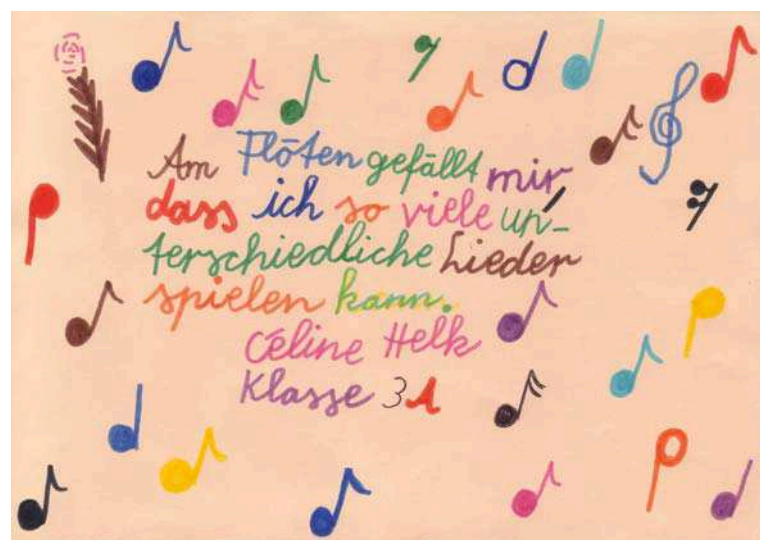 Am Flöten gefällt mir
dass ich so viele un-
terschiedliche Lieder
spielen kann.
Céline Helk
Klasse 3A